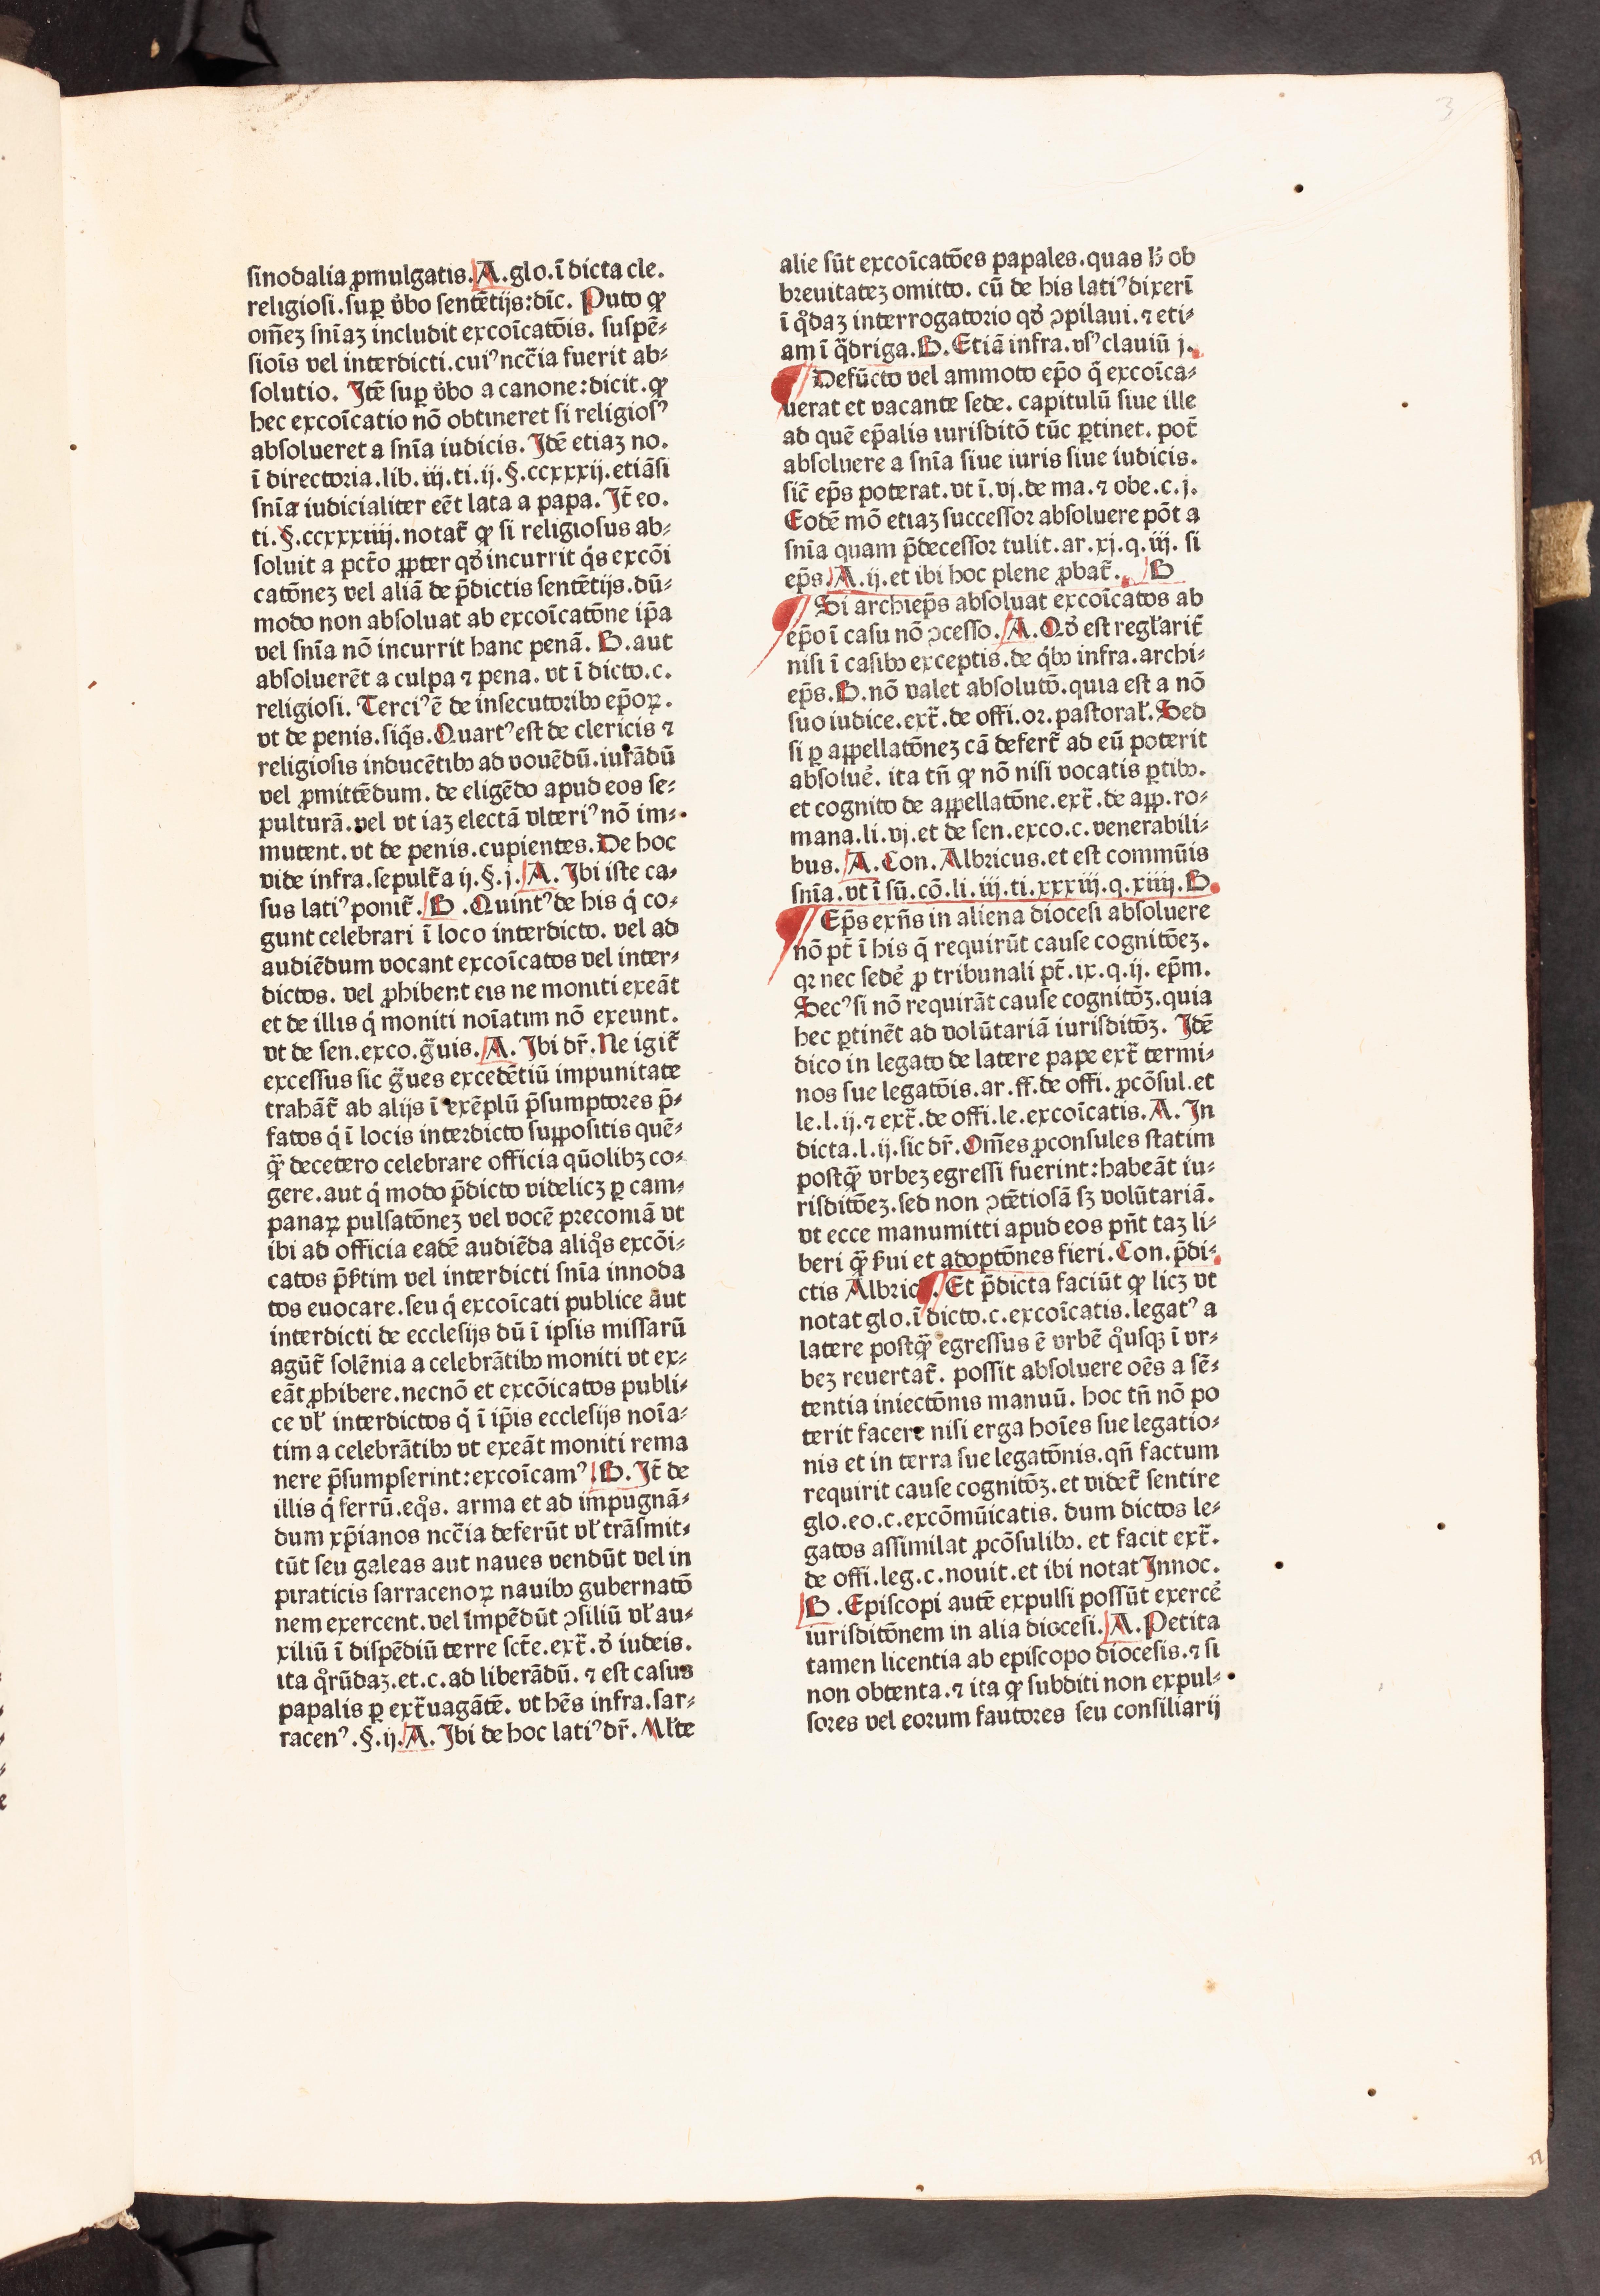 3
sinodalia ꝓmulgatis. A. glo. ī dicta cle.
religiosi. suꝑ v̄bo sentētijs: dīc. Puto ꝙ
om̄eꝫ sn̄iaꝫ includit excoīcatōis. suspē⸗
siois vel interdicti. cuiꝰ ncc̄ia fuerit ab⸗
solutio. Itē suꝑ v̄bo a canone: dicit. ꝙ
hec excoīcatio nō obtineret si religiosꝰ
absolueret a sn̄ia iudicis. Idē etiaꝫ no.
ī directoria. lib. iij. ti. ij. §. ccxxxij. etiāsi
sn̄ia iudicialiter eēt lata a papa. It̄ eo.
ti. §. ccxxxiiij. notat̄ ꝙ si religiosus ab⸗
soluit a pct̄o ꝓpter qď incurrit q̇s excōi
catōneꝫ vel aliā de p̄dictis sentētijs. dū⸗
modo non absoluat ab excoīcatōne ip̄a
vel sn̄ia nō incurrit hanc penā. B. aut
absoluerēt a culpa ⁊ pena. vt ī dicto. c.
religiosi. Terciꝰ ē de insecutoribꝰ ep̄oꝝ.
vt de penis. siq̇s. Quartꝰ est de clericis ⁊
religiosis inducētibꝰ ad vouēdū. iurādū
vel ꝓmittēdum. de eligēdo apud eos se⸗
pulturā. vel vt iaꝫ electā vlteriꝰ nō im⸗
mutent. vt de penis. cupientes. De hoc
vide infra. sepult̄a ij. §. j. A. Ibi iste ca⸗
sus latiꝰ ponit̄. B. Quintꝰ de his q̇ co⸗
gunt celebrari ī loco interdicto. vel ad
audiēdum vocant excoīcatos vel inter⸗
dictos. vel ꝓhibent eis ne moniti exeāt
et de illis q̇ moniti noīatim nō exeunt.
vt de sen. exco. g̈uis. A. Ibi dr̄. Ne igit̄
excessus sic g̈ues excedētiū impunitate
trahāt̄ ab alijs ī exēplū p̄sumptores p̄⸗
fatos q̇ ī locis interdicto suppositis quē⸗
ꝙ̈ decetero celebrare officia qūolibꝫ co⸗
gere. aut q̇ modo p̄dicto videlicꝫ ꝑ cam⸗
panaꝝ pulsatōneꝫ vel vocē preconiā vt
ibi ad officia eadē audiēda aliq̊s excōi⸗
catos p̄s̄tim vel interdicti sn̄ia innoda
tos euocare. seu q̇ excoīcati publice aut
interdicti de ecclesijs dū ī ipsis missarū
agūt̄ solēnia a celebrātibꝰ moniti vt ex⸗
eāt ꝓhibere. necnō et excōicatos publi⸗
ce vl̄ interdictos q̇ ī ip̄is ecclesijs noīa⸗
tim a celebrātibꝰ vt exeāt moniti rema
nere p̄sumpserint: excoīcamꝰ. B. It̄ de
illis q̇ ferrū. eq̊s. arma et ad impugnā⸗
dum xp̄ianos ncc̄ia deferūt vl̄ trāsmit⸗
tūt seu galeas aut naues vendūt vel in
piraticis sarracenoꝝ nauibꝰ gubernatō
nem exercent. vel impēdūt ꝯsiliū vl̄ au⸗
xiliū ī dispēdiū terre sct̄e. ext̄. ď iudeis.
ita q̊rūdaꝫ. et. c. ad liberādū. ⁊ est casus
papalis ꝑ ext̄uagātē. vt hēs infra. sar⸗
racenꝰ. §. ij. A. Ibi de hoc latiꝰ dr̄. Ml̄te
alie sūt excoīcatōes papales. quas h̄ ob
breuitateꝫ omitto. cū de his latiꝰ dixeri
ī q̊daꝫ interrogatorio qď ꝯpilaui. ⁊ eti⸗
am ī q̈driga. B. Etiā infra. vsꝰ clauiū j.
Defūcto vel ammoto ep̄o q̇ excoīca⸗
uerat et vacante sede. capitulū siue ille
ad quē ep̄alis iurisditō tūc ꝑtinet. pot̄
absoluere a sn̄ia siue iuris siue iudicis.
sic̄ ep̄s poterat. vt ī. vj. de ma. ⁊ obe. c. j.
Eodē mō etiaꝫ successor absoluere pōt a
sn̄ia quam p̄decessor tulit. ar. xj. q. iij. si
ep̄s. A. ij. et ibi hoc plene ꝓbat̄. B
Si archiep̄s absoluat excoīcatos ab
ep̄o ī casu nō ꝯcesso. A. Qď est regl̄arit̄
nisi ī casibꝰ exceptis. de q̇bꝰ infra. archi⸗
ep̄s. B. nō valet absolutō. quia est a nō
suo iudice. ext̄. de offi. or. pastoral̄. Sed
si ꝑ appellatōneꝫ cā defert̄ ad eū poterit
absolue᷑. ita tn̄ ꝙ nō nisi vocatis ꝑtibꝰ.
et cognito de appellatōne. ext̄. de app. ro⸗
mana. li. vj. et de sen. exco. c. venerabili⸗
bus. A. Con. Albricus. et est commūis
sn̄ia. vt ī sū. cō. li. iij. ti. xxxiij. q. xiiij. B.
Ep̄s exn̄s in aliena diocesi absoluere
nō pt̄ ī his q̄ requirūt cause cognitōeꝫ.
qꝛ nec sede᷑ ꝓ tribunali pt̄. ix. q. ij. ep̄m.
Secꝰ si nō requirāt cause cognitōꝫ. quia
hec ꝑtinēt ad volūtariā iurisditōꝫ. Idē
dico in legato de latere pape ext̄ termi⸗
nos sue legatōis. ar. ff. de offi. ꝓcōsul. et
le. l. ij. ⁊ ext̄. de offi. le. excoīcatis. A. In
dicta. l. ij. sic dr̄. Om̄es ꝓconsules statim
postꝙ̈ vrbeꝫ egressi fuerint: habeāt iu⸗
risditōeꝫ. sed non ꝯtētiosā sꝫ volūtariā.
vt ecce manumitti apud eos pn̄t taꝫ li⸗
beri ꝙ̈ s̄ui et adoptōnes fieri. Con. p̄di⸗
ctis Albricꝰ. Et p̄dicta faciūt ꝙ licꝫ vt
notat glo. ī dicto. c. excoīcatis. legatꝰ a
latere postꝙ̈ egressus ē vrbē q̊usqꝫ ī vr⸗
beꝫ reuertat̄. possit absoluere oēs a sē⸗
tentia iniectōnis manuū. hoc tn̄ nō po
terit facere nisi erga hoīes sue legatio⸗
nis et in terra sue legatōnis. qn̄ factum
requirit cause cognitōꝫ. et videt̄ sentire
glo. eo. c. excōmūicatis. dum dictos le⸗
gatos assimilat ꝓcōsulibꝰ. et facit ext̄.
de offi. leg. c. nouit. et ibi notat Innoc.
B. Episcopi autē expulsi possūt exerce᷑
iurisditōnem in alia diocesi. A. Petita
tamen licentia ab episcopo diocesis. ⁊ si
non obtenta. ⁊ ita ꝙ subditi non expul⸗
sores vel eorum fautores seu consiliarij